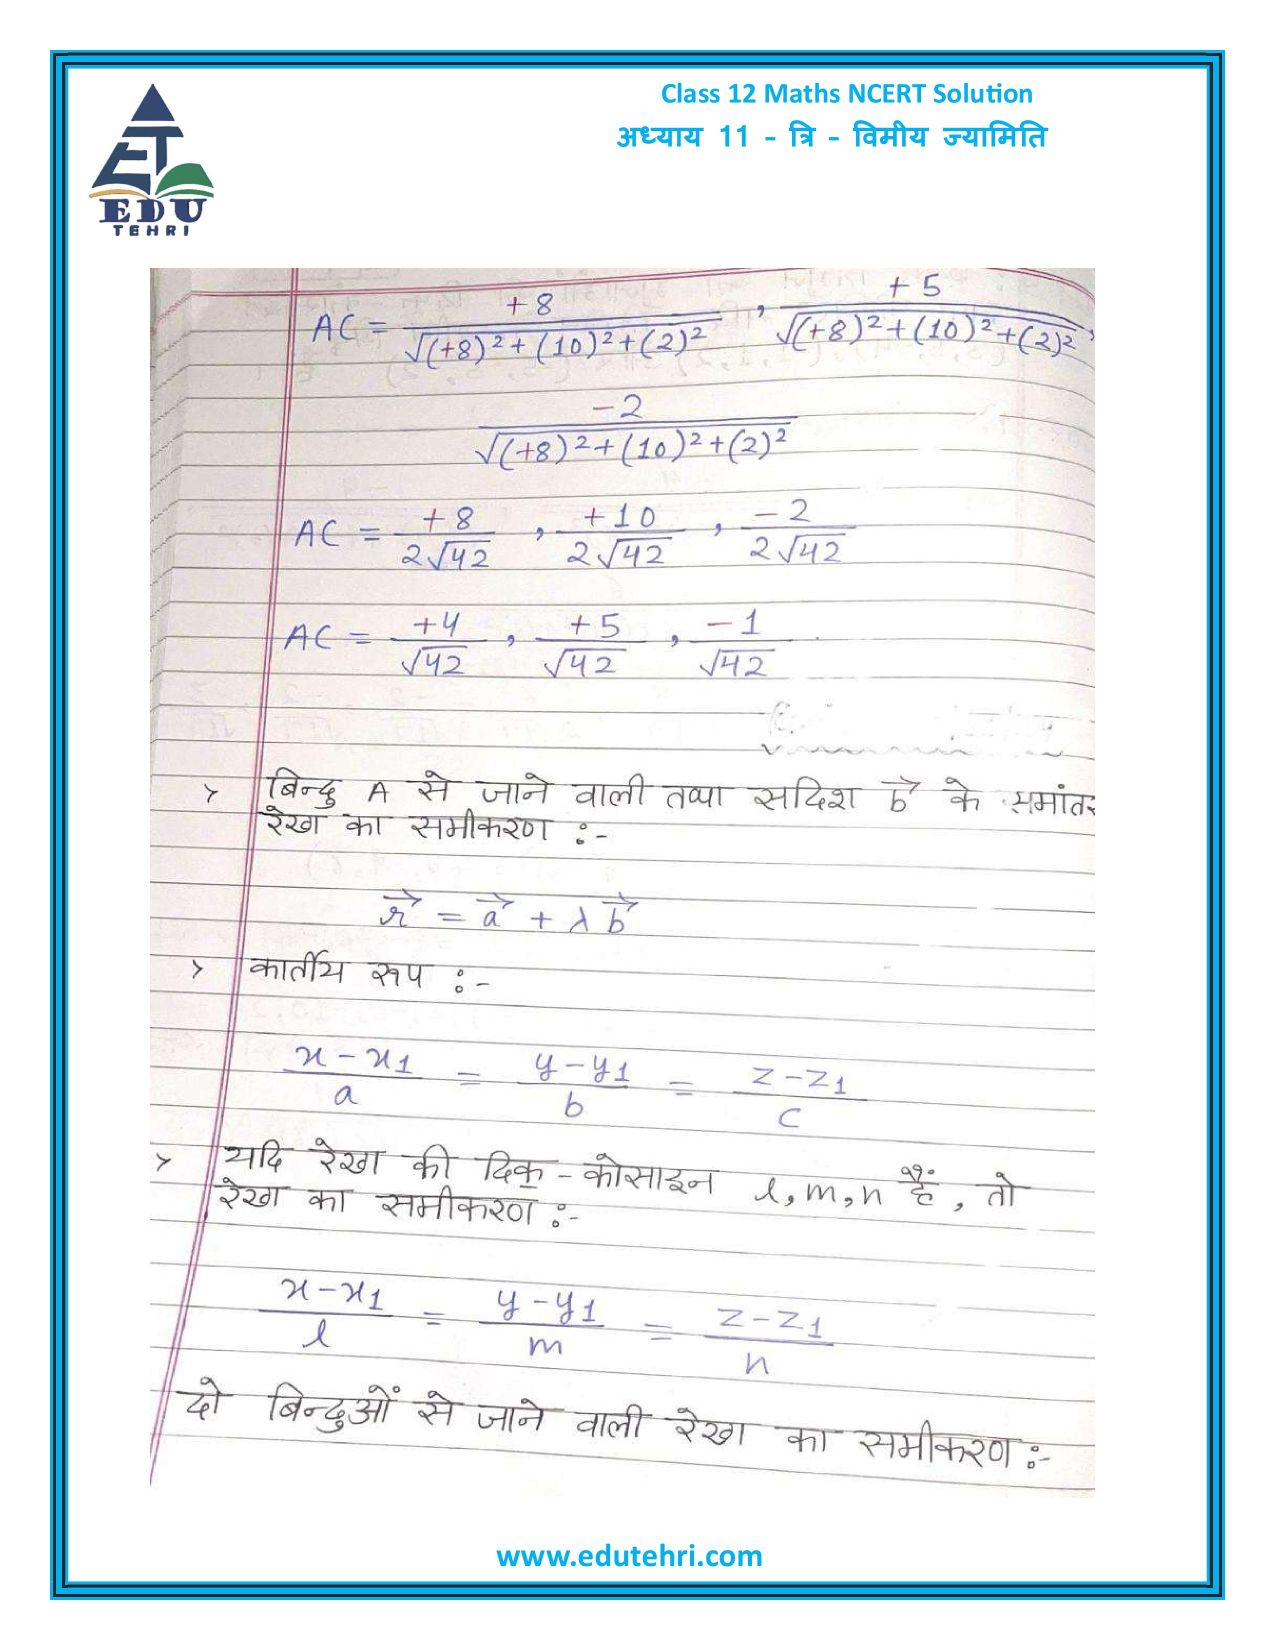 Class 12 Maths NCERT Solution
अध्याय 11 - त्रि - विमीय ज्यामिति
EDU
TEHRI
AC = +8/√((+8)²+(10)²+(2)²) , +5/√((+8)²+(10)²+(2)²) ,
-2/√((+8)²+(10)²+(2)²)
AC = +8/2√42 , +10/2√42 , -2/2√42
AC = +4/√42 , +5/√42 , -1/√42
> बिन्दु A से जाने वाली तथा सदिश b⃗ के समांतर
रेखा का समीकरण :-
r⃗ = a⃗ + λb⃗
> कार्तीय रूप :-
(x-x₁)/a = (y-y₁)/b = (z-z₁)/c
> यदि रेखा की दिक् - कोसाइन l, m, n हैं, तो
रेखा का समीकरण :-
(x-x₁)/l = (y-y₁)/m = (z-z₁)/n
दो बिन्दुओं से जाने वाली रेखा का समीकरण :-
www.edutehri.com